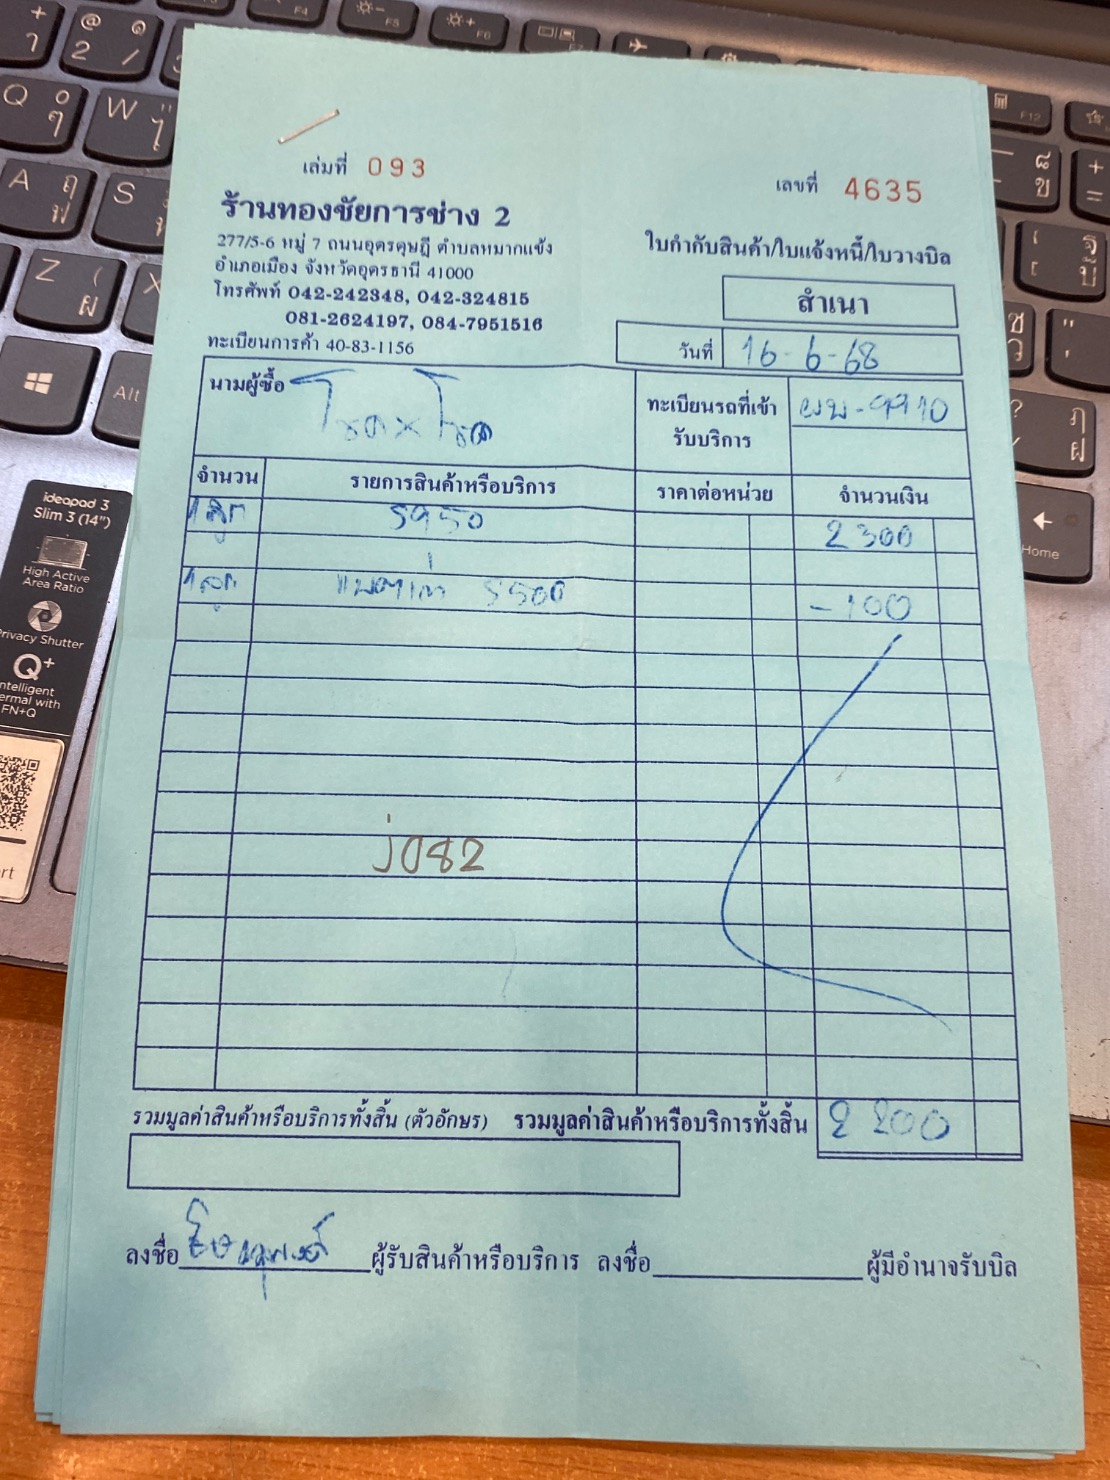 เล่มที่ 093
เลขที่ 4635
ร้านทองชัยการช่าง 2
277/5-6 หมู่ 7 ถนนอุดรดุษฎี ตำบลหมากแข้ง
อำเภอเมือง จังหวัดอุดรธานี 41000
โทรศัพท์ 042-242348, 042-324815
081-2624197, 084-7951516
ทะเบียนการค้า 40-83-1156
ใบกำกับสินค้า/ใบแจ้งหนี้/ใบวางบิล
สำเนา
วันที่ 16-6-68
นามผู้ซื้อ โชค×โชค
ทะเบียนรถที่เข้ารับบริการ ผบ-9910
จำนวน รายการสินค้าหรือบริการ ราคาต่อหน่วย จำนวนเงิน
1 ลูก 5950 2300
1 ลูก แบตเก่า 5500 -100
J082
รวมมูลค่าสินค้าหรือบริการทั้งสิ้น (ตัวอักษร) รวมมูลค่าสินค้าหรือบริการทั้งสิ้น 2200
ลงชื่อ ผู้รับสินค้าหรือบริการ ลงชื่อ ผู้มีอำนาจรับบิล
Q ๐ ๆ
W " ไ
A ฤ ฟ
S
Z ( ผ
X
Alt
F4
F5
F6
F12
Home
ideapad 3
Slim 3 (14")
High Active
Area Ratio
Privacy Shutter
Q+
Intelligent
FN+Q